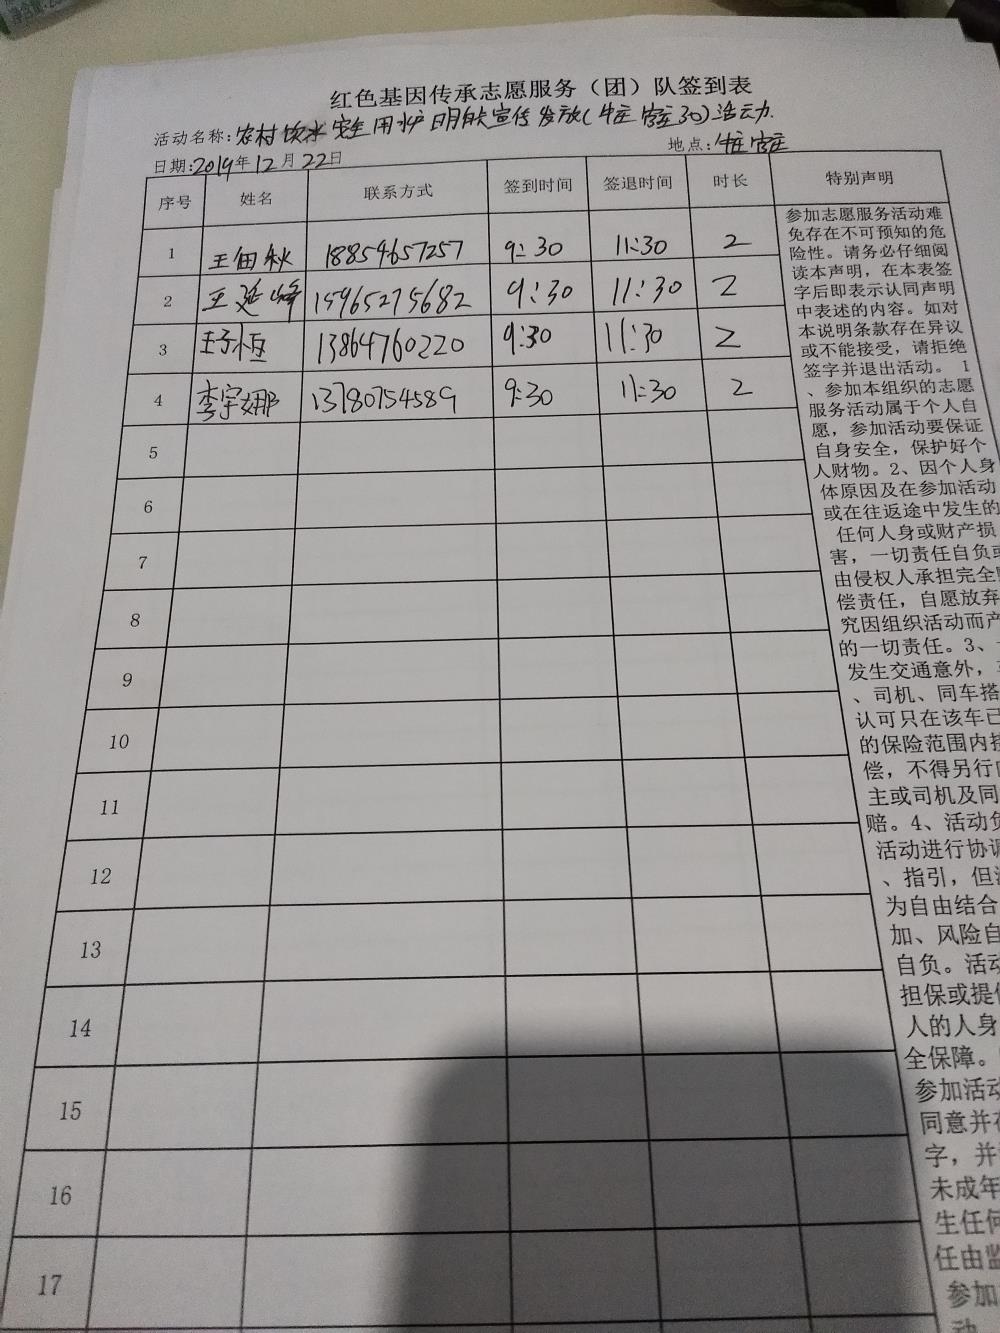 红色基因传承志愿服务（团）队签到表
活动名称：农村饮水安全用水户明白卡宣传发放（牛庄 30）活动
日期：2019年12月22日
地点：牛庄
序号 姓名 联系方式 签到时间 签退时间 时长 特别声明
1 王 秋 18854657257 9:30 11:30 2
2 王延峰 15965275682 9:30 11:30 2
3 恒 13864760220 9:30 11:30 2
4 李宇娜 13780754589 9:30 11:30 2
5
6
7
8
9
10
11
12
13
14
15
16
17
参加志愿服务活动难
免存在不可预知的危
险性。请务必仔细阅
读本声明，在本表签
字后即表示认同声明
中表述的内容。如对
本说明条款存在异议
或不能接受，请拒绝
签字并退出活动。 1
、参加本组织的志愿
服务活动属于个人自
愿，参加活动要保证
自身安全，保护好个
人财物。2、因个人身
体原因及在参加活动
或在往返途中发生的
任何人身或财产损
害，一切责任自负或
由侵权人承担完全
偿责任，自愿放弃
究因组织活动而产
的一切责任。3、
发生交通意外，
、司机、同车搭
认可只在该车已
的保险范围内
偿，不得另行
主或司机及同
赔。4、活动负
活动进行协调
、指引，但
为自由结合
加、风险自
自负。活动
担保或提供
人的人身
全保障。
参加活动
同意并在
字，并
未成年
生任何
任由监
参加
动